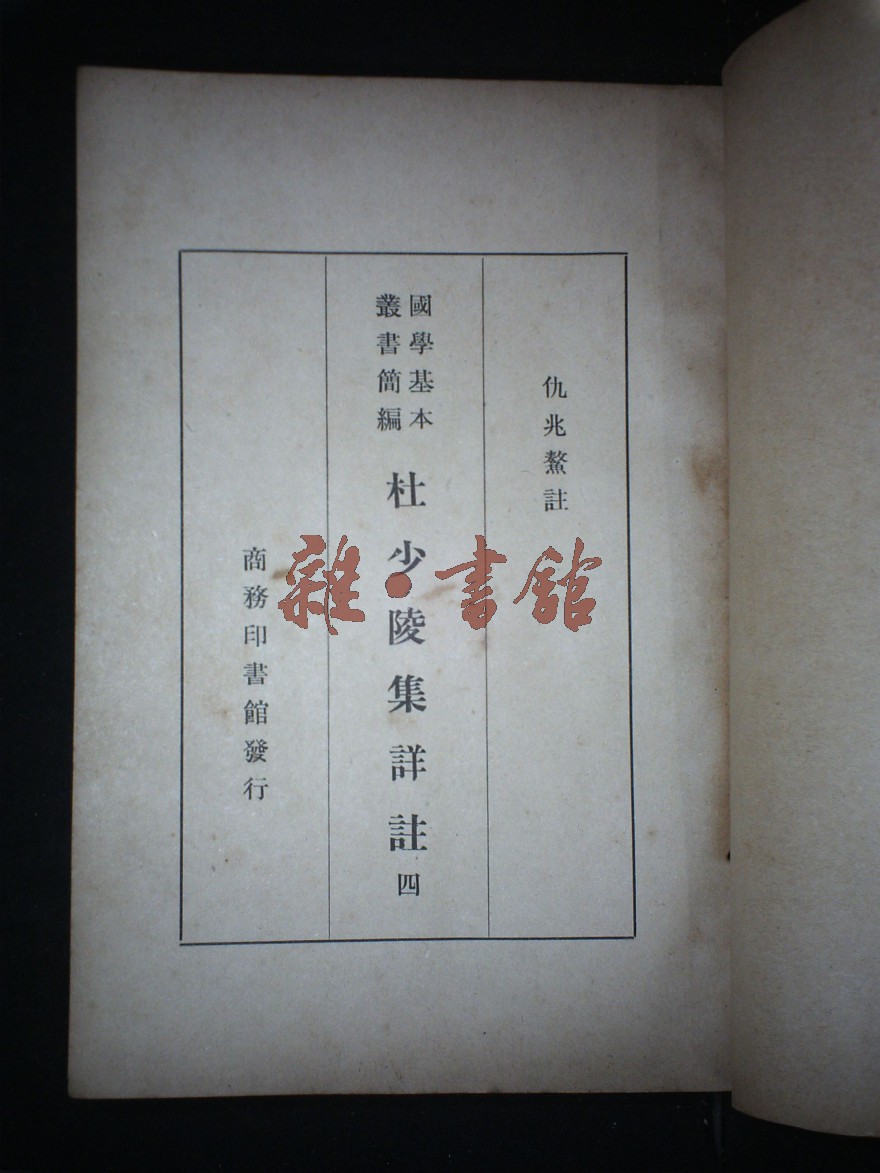 仇兆鰲註
國學基本
叢書簡編
杜少陵集詳註 四
商務印書館發行
雜·書館